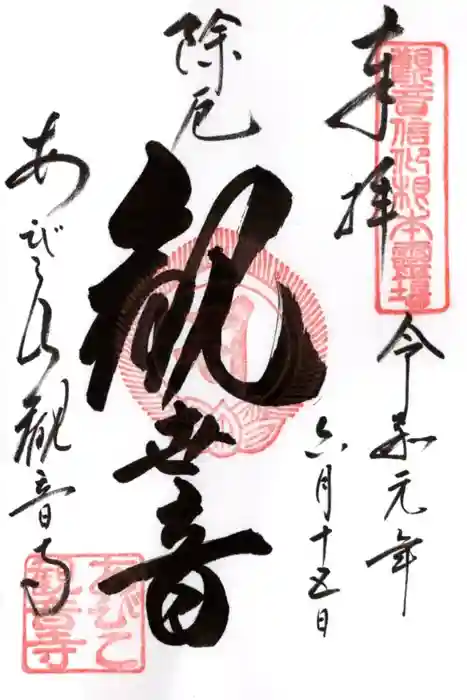 奉拝
観音信仰根本霊場
令和元年
六月十五日
除厄
観世音
あびこ山観音寺
あびこ観音寺